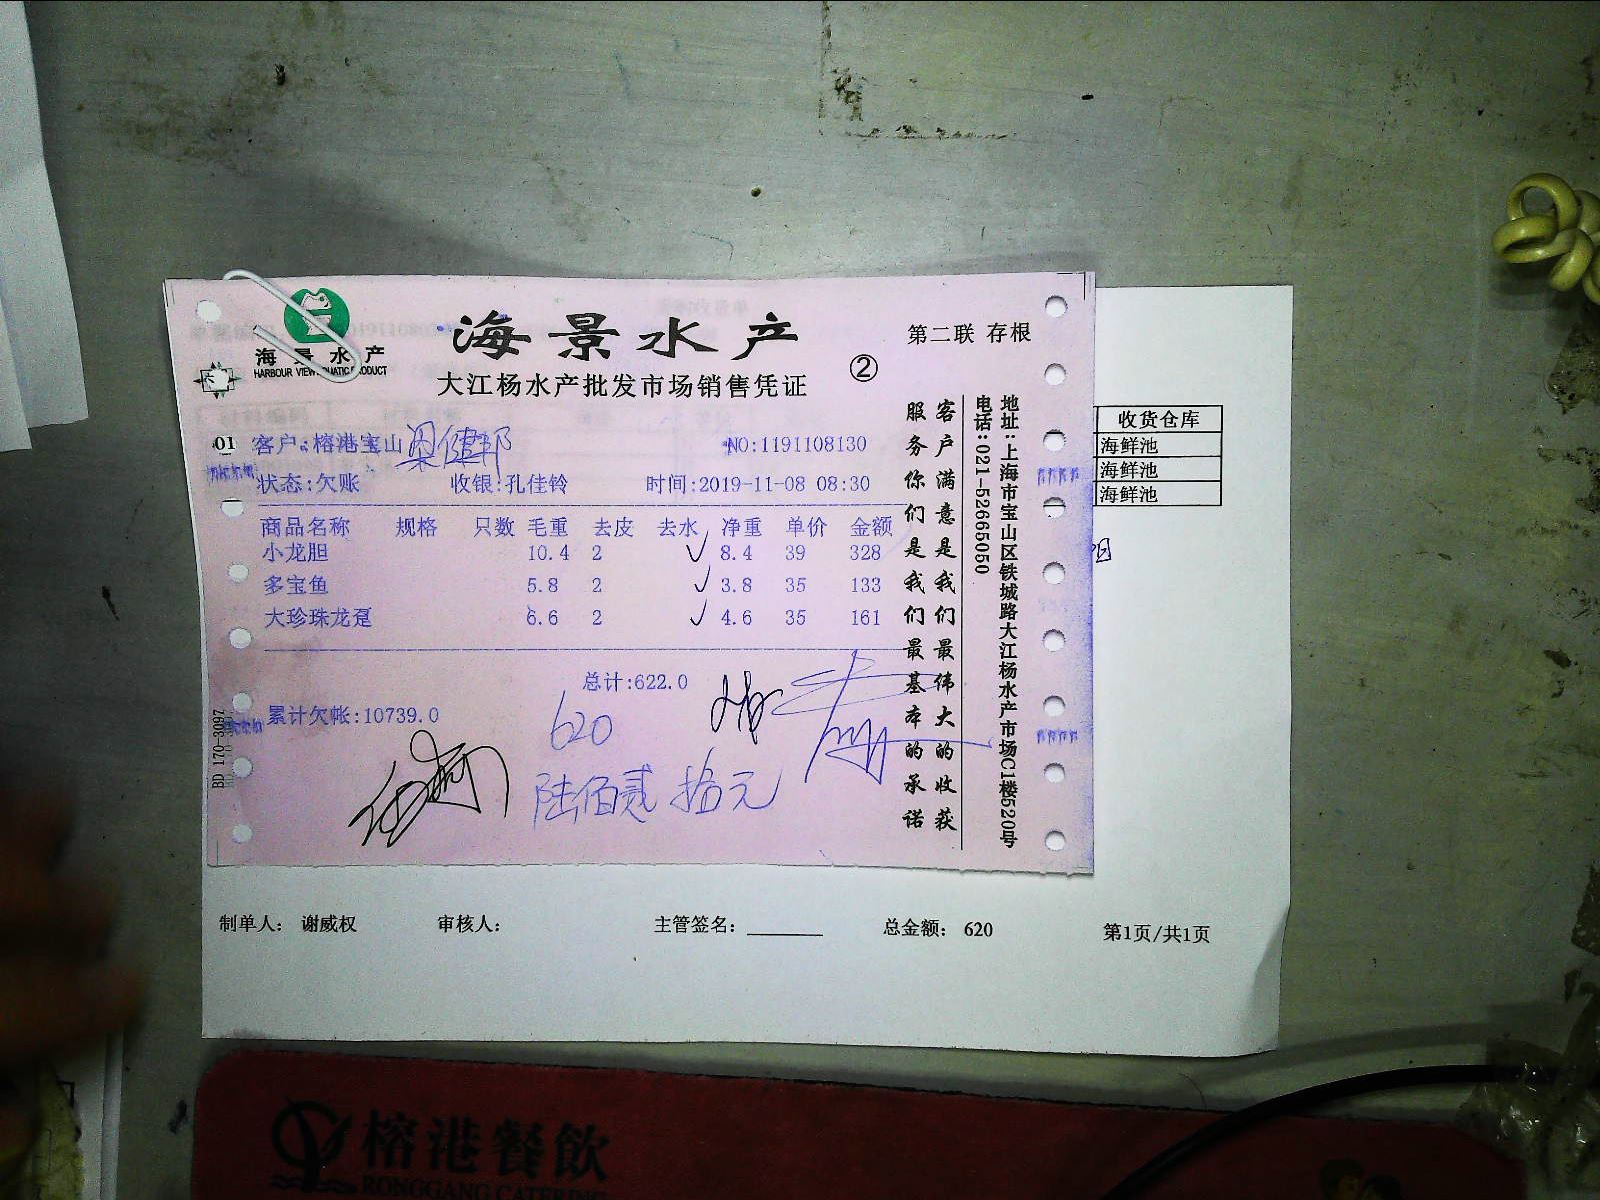 海景水产
HARBOUR VIEW AQUATIC PRODUCT
海景水产
大江杨水产批发市场销售凭证
②
第二联 存根
01 客户:榕港宝山 梁健邦 NO:1191108130
状态:欠账 收银:孔佳铃 时间:2019-11-08 08:30
商品名称 规格 只数 毛重 去皮 去水 净重 单价 金额
小龙胆 10.4 2 8.4 39 328
多宝鱼 5.8 2 3.8 35 133
大珍珠龙趸 6.6 2 4.6 35 161
总计:622.0
累计欠帐:10739.0
620
陆佰贰拾元
客户满意是我们最伟大的收获
服务你们是我们最基本的承诺
地址:上海市宝山区铁城路大江杨水产市场C1楼520号
电话:021-52665050
BD 170-3097
收货仓库
海鲜池
海鲜池
海鲜池
制单人: 谢威权 审核人: 主管签名: 总金额: 620 第1页/共1页
榕港餐飲
RONGGANG CATERING